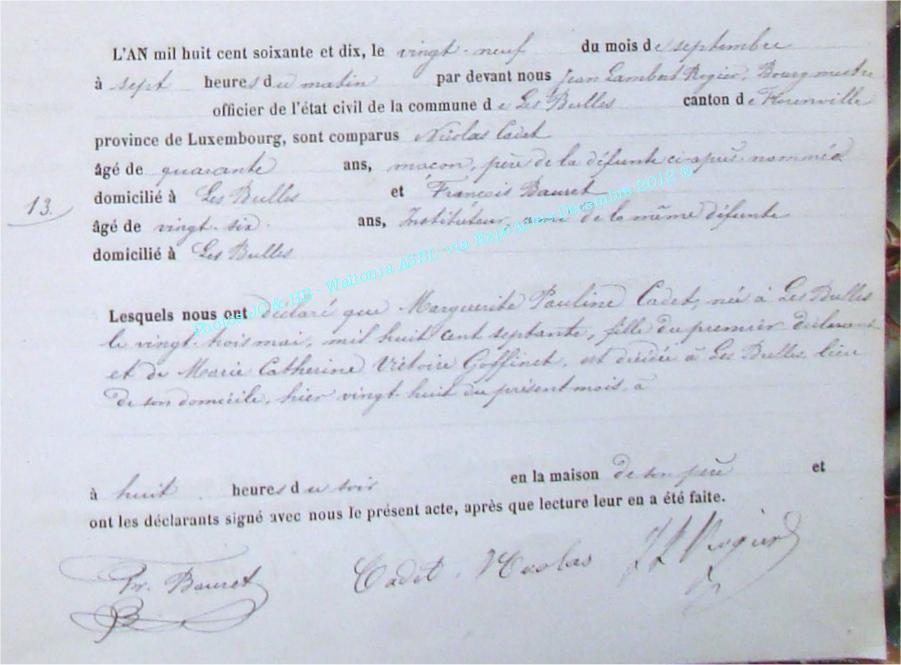 L'AN mil huit cent soixante et dix, le vingt-neuf du mois de septembre
à sept heures du matin par devant nous Jean Lambert Rogier, Bourgmestre
officier de l'état civil de la commune de Les Bulles canton de Florenville
province de Luxembourg, sont comparus Nicolas Cadet
âgé de quarante ans, maçon, père de la défunte ci-après nommée
domicilié à Les Bulles et François Bauret
13.
âgé de vingt-six ans, Instituteur, ami de la même défunte
domicilié à Les Bulles
Photos JC & HB - Wallonia ASBL via Décembre 2012 ®
Lesquels nous ont déclaré que Marguerite Pauline Cadet, née à Les Bulles
le vingt-trois mai, mil huit cent septante, fille du premier déclarant
et de Marie Catherine Victoire Goffinet, est décédée à Les Bulles, lieu
de son domicile, hier vingt-huit du présent mois, à
à huit heures du soir en la maison de son père et
ont les déclarants signé avec nous le présent acte, après que lecture leur en a été faite.
Fr. Bauret Cadet Nicolas J L Rogier